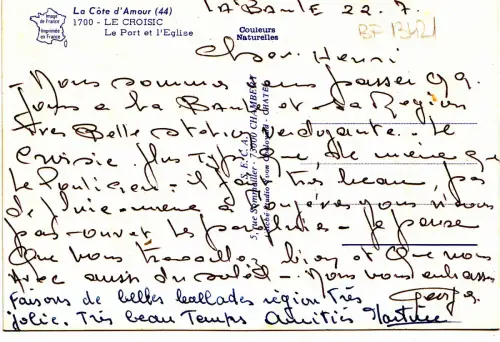 La Côte d'Amour (44)
1700 - LE CROISIC
Le Port et l'Eglise
Image de France
Imprimée en France
Couleurs Naturelles
LA BAULE 22.7.
BF 13421
Cher Henri
- Nous sommes venus passer qq.
Jours a la Baule et la Region
très Belle station verdoyante.. Le
Croisic plus Typique, de même que
le Pouliguen - il fait très beau, pas
de pluie
pas ouvert les - Je pense
Que vous travaillez bien et Que vous
avez aussi du soleil - Nous vous embrassons
Georges
Faisons de belles ballades région très
jolie. Très beau Temps Amitiés Martine
5, rue Sommeiller - 73000 CHAMBÉRY